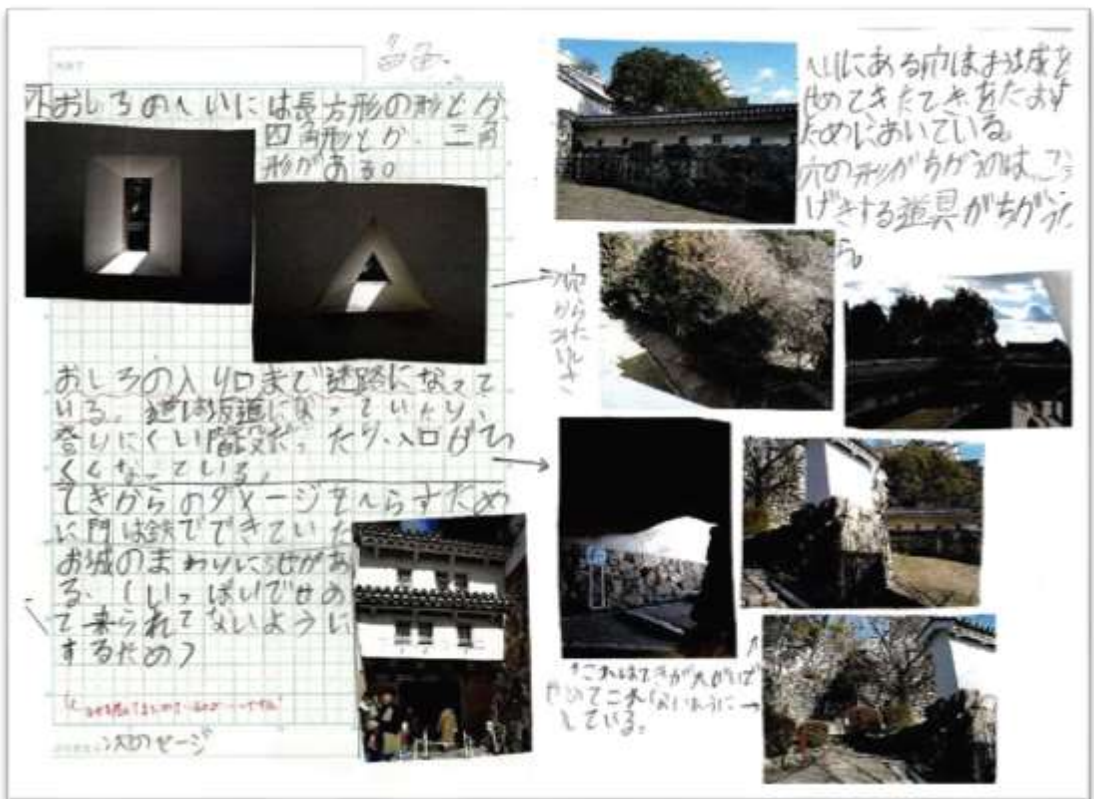 おしろのへいには長方形の形とか
四角形とか、三角
形がある。
おしろの入り口まで迷路になって
いる。道は坂道になっていたり、
登りにくい階段だったり、入口がひ
くくなっている。
てきからのダメージをへらすため
に門は鉄でできていた
お城のまわりに池があ
る、(いっぱいでせめ
て来られてないように
するため)
次のページ
へいにある穴はお城を
せめてきたてきをたおす
ためにおいている。
穴の形がちがうのは、こう
げきする道具がちがうた
ら。
穴から
みたけしき
これはてきが大ぜいで
せめてこれないように
している。